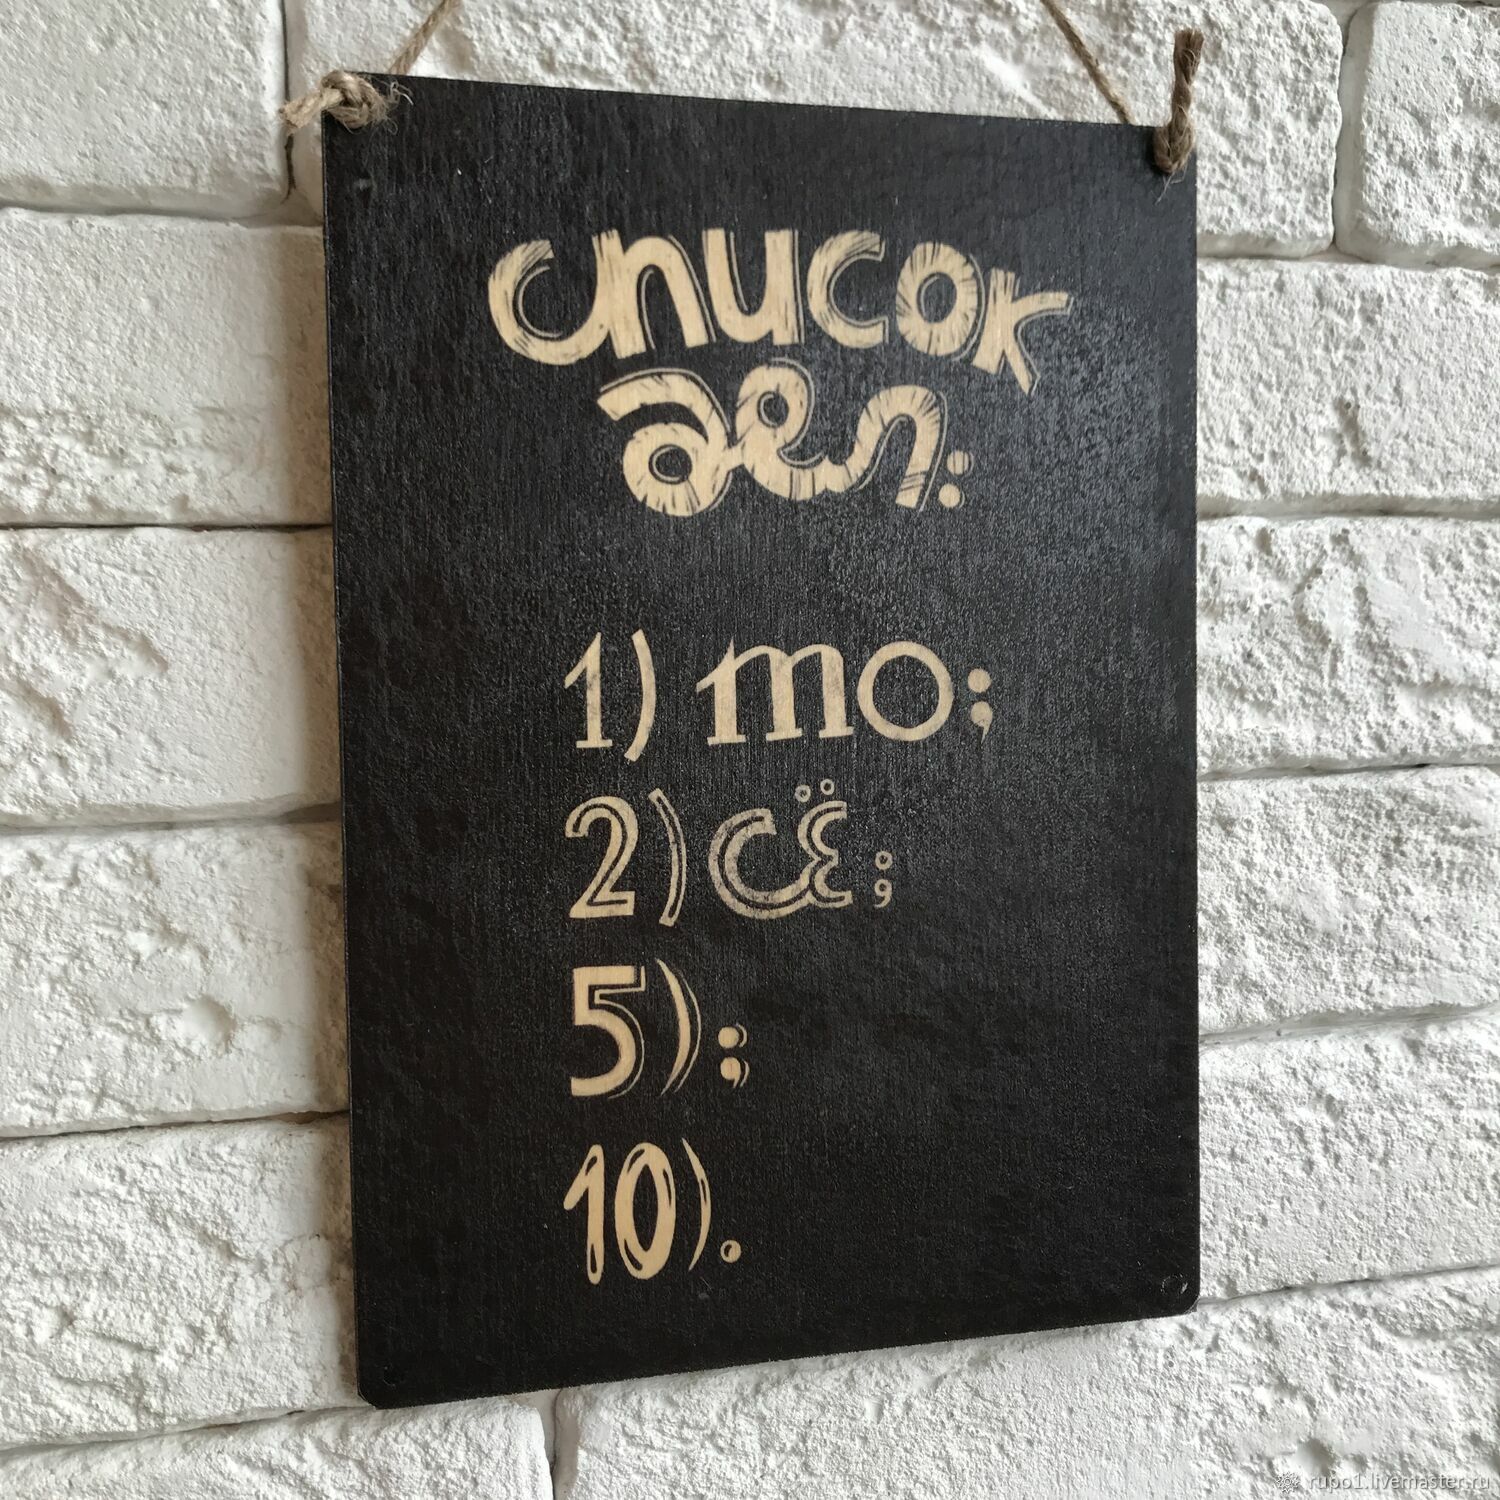 список
дел:
1) то;
2) сё;
5);
10).
rupo1.livemaster.ru